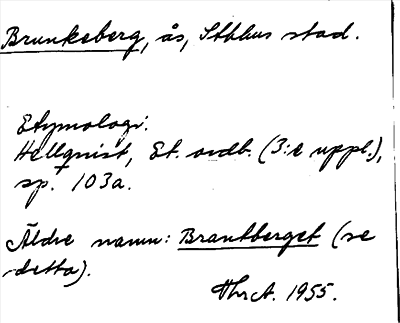 Brunkeberg, ås, Sthlms stad.
Etymologi:
Hellquist, Et. ordb. (3:e uppl.),
sp. 103a.
Äldre namn: Brantberget (se
detta).
1955.